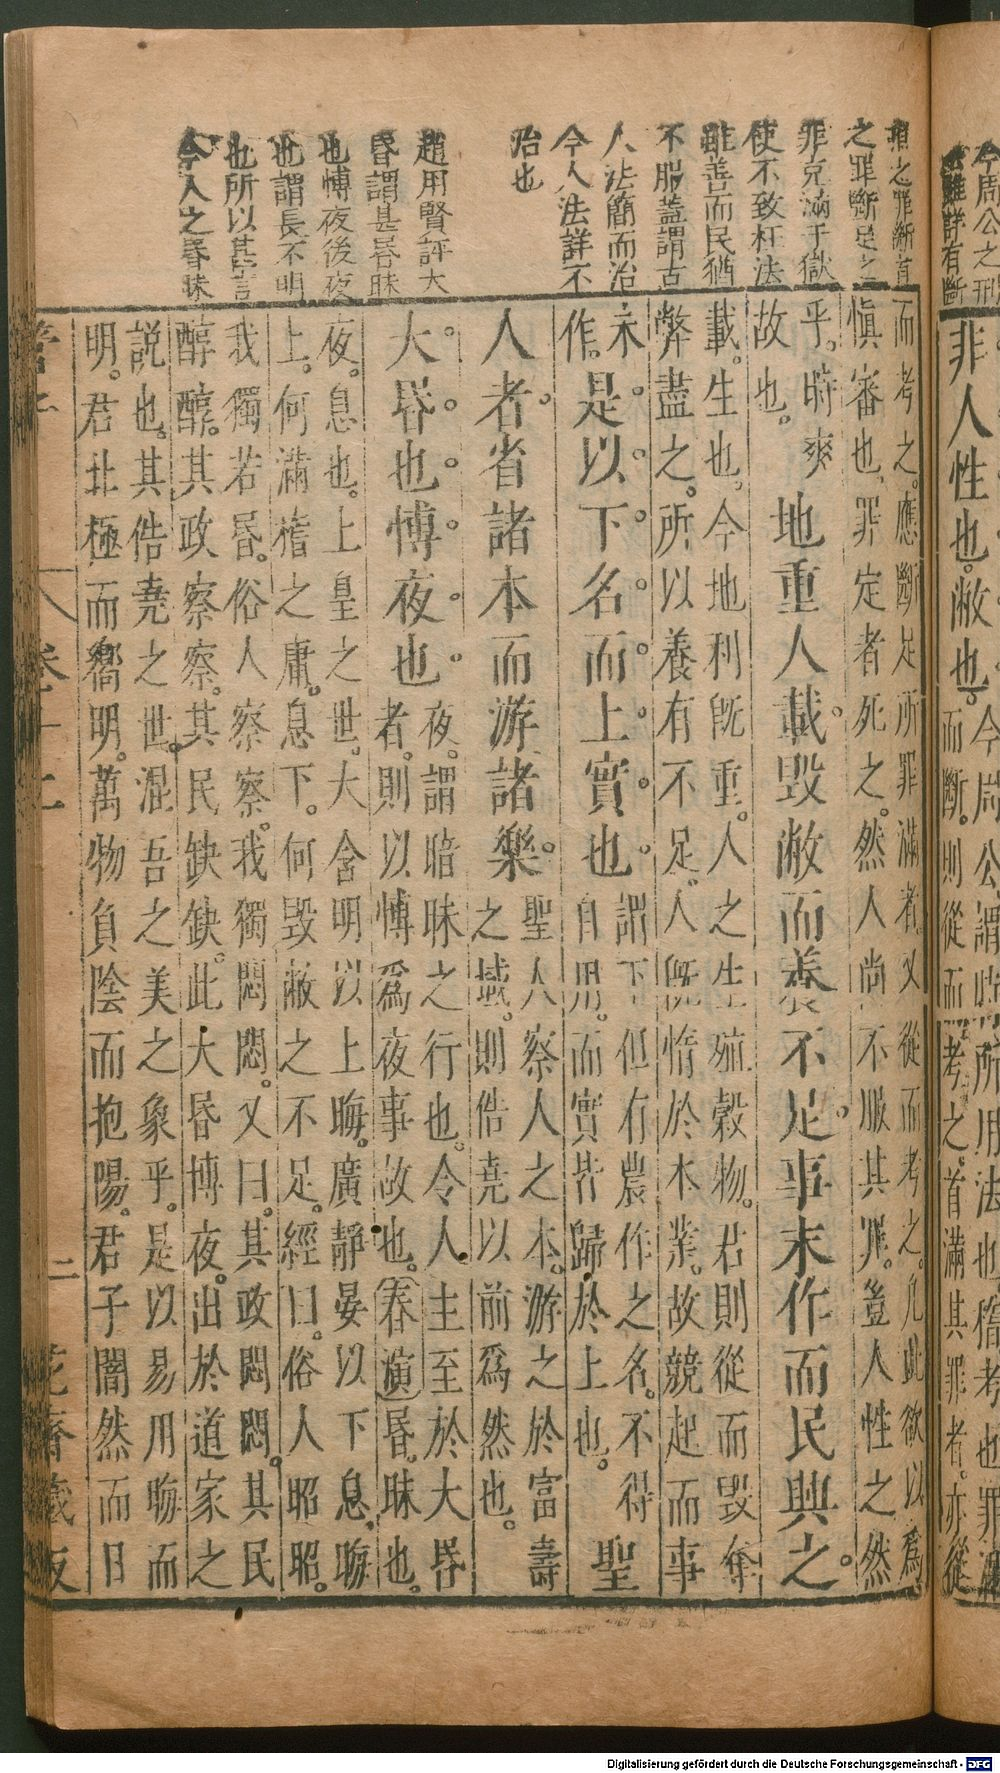 今周公之刑
雖詳有斷
非人性也。敝也。
今周公謂時所用法也稽考也罪滿
而斷。則從而考之。首滿其罪者。亦從
首之罪斷首
之罪斷足之
罪克滿于獄
使不致枉法
雖善而民猶
不服蓋謂古
人法簡而治
今人法詳不
治也
趙用賢評大
昏謂甚昏昧
也愽夜後夜
也謂長不明
也所以甚言
今人之昏昧
而考之。應斷足所罪滿者。又從而考之。凡此欲以爲
愼審也。罪定者死之。然人尚不服其罪。豈人性之然
乎。時爽
故也。
地重人載。毀敝而養不足。事末作而民興之。
載。生也。今地利旣重。人之生殖穀物。君則從而毀奪
弊盡之。所以養有不足。人旣惰於本業。故競起而事
末
作。
是以下名而上實也。
謂下但有農作之名。不得
自用。而實皆歸於上也。
聖
人者。省諸本而游諸樂。
聖人察人之本。游之於富壽
之域。則俈堯以前爲然也。
大昏也。愽夜也。
夜。謂暗昧之行也。令人主至於大昏
者。則以愽爲夜事故也。春演昏。昧也。
夜。息也。上皇之世。大含明以上晦。廣靜晏以下息。晦
上。何滿稽之庸。息下。何毀敝之不足。經曰。俗人昭昭。
我獨若昏。俗人察察。我獨悶悶。又曰。其政悶悶。其民
醇醇。其政察察。其民缺缺。此大昏博夜。出於道家之
説也。其俈堯之世。混吾之美之象乎。是以易用晦而
明。君北極而嚮明。萬物負陰而抱陽。君子闇然而日
管子 卷十二 二 花齋藏版
Digitalisierung gefördert durch die Deutsche Forschungsgemeinschaft - DFG